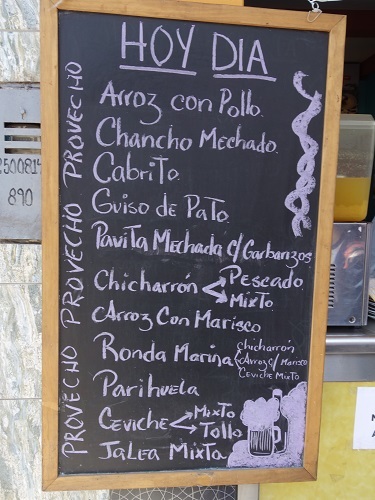 HOY DIA
PROVECHO PROVECHO PROVECHO
Arroz con Pollo.
Chancho Mechado.
Cabrito.
Guiso de Pato.
Pavita Mechada c/Garbanzos
Chicharrón
Pescado
Mixto
Arroz Con Marisco
Ronda Marina
Chicharrón
Arroz c/ Marisco
Ceviche Mixto
Parihuela
Ceviche
Mixto
Tollo
Jalea Mixta
890